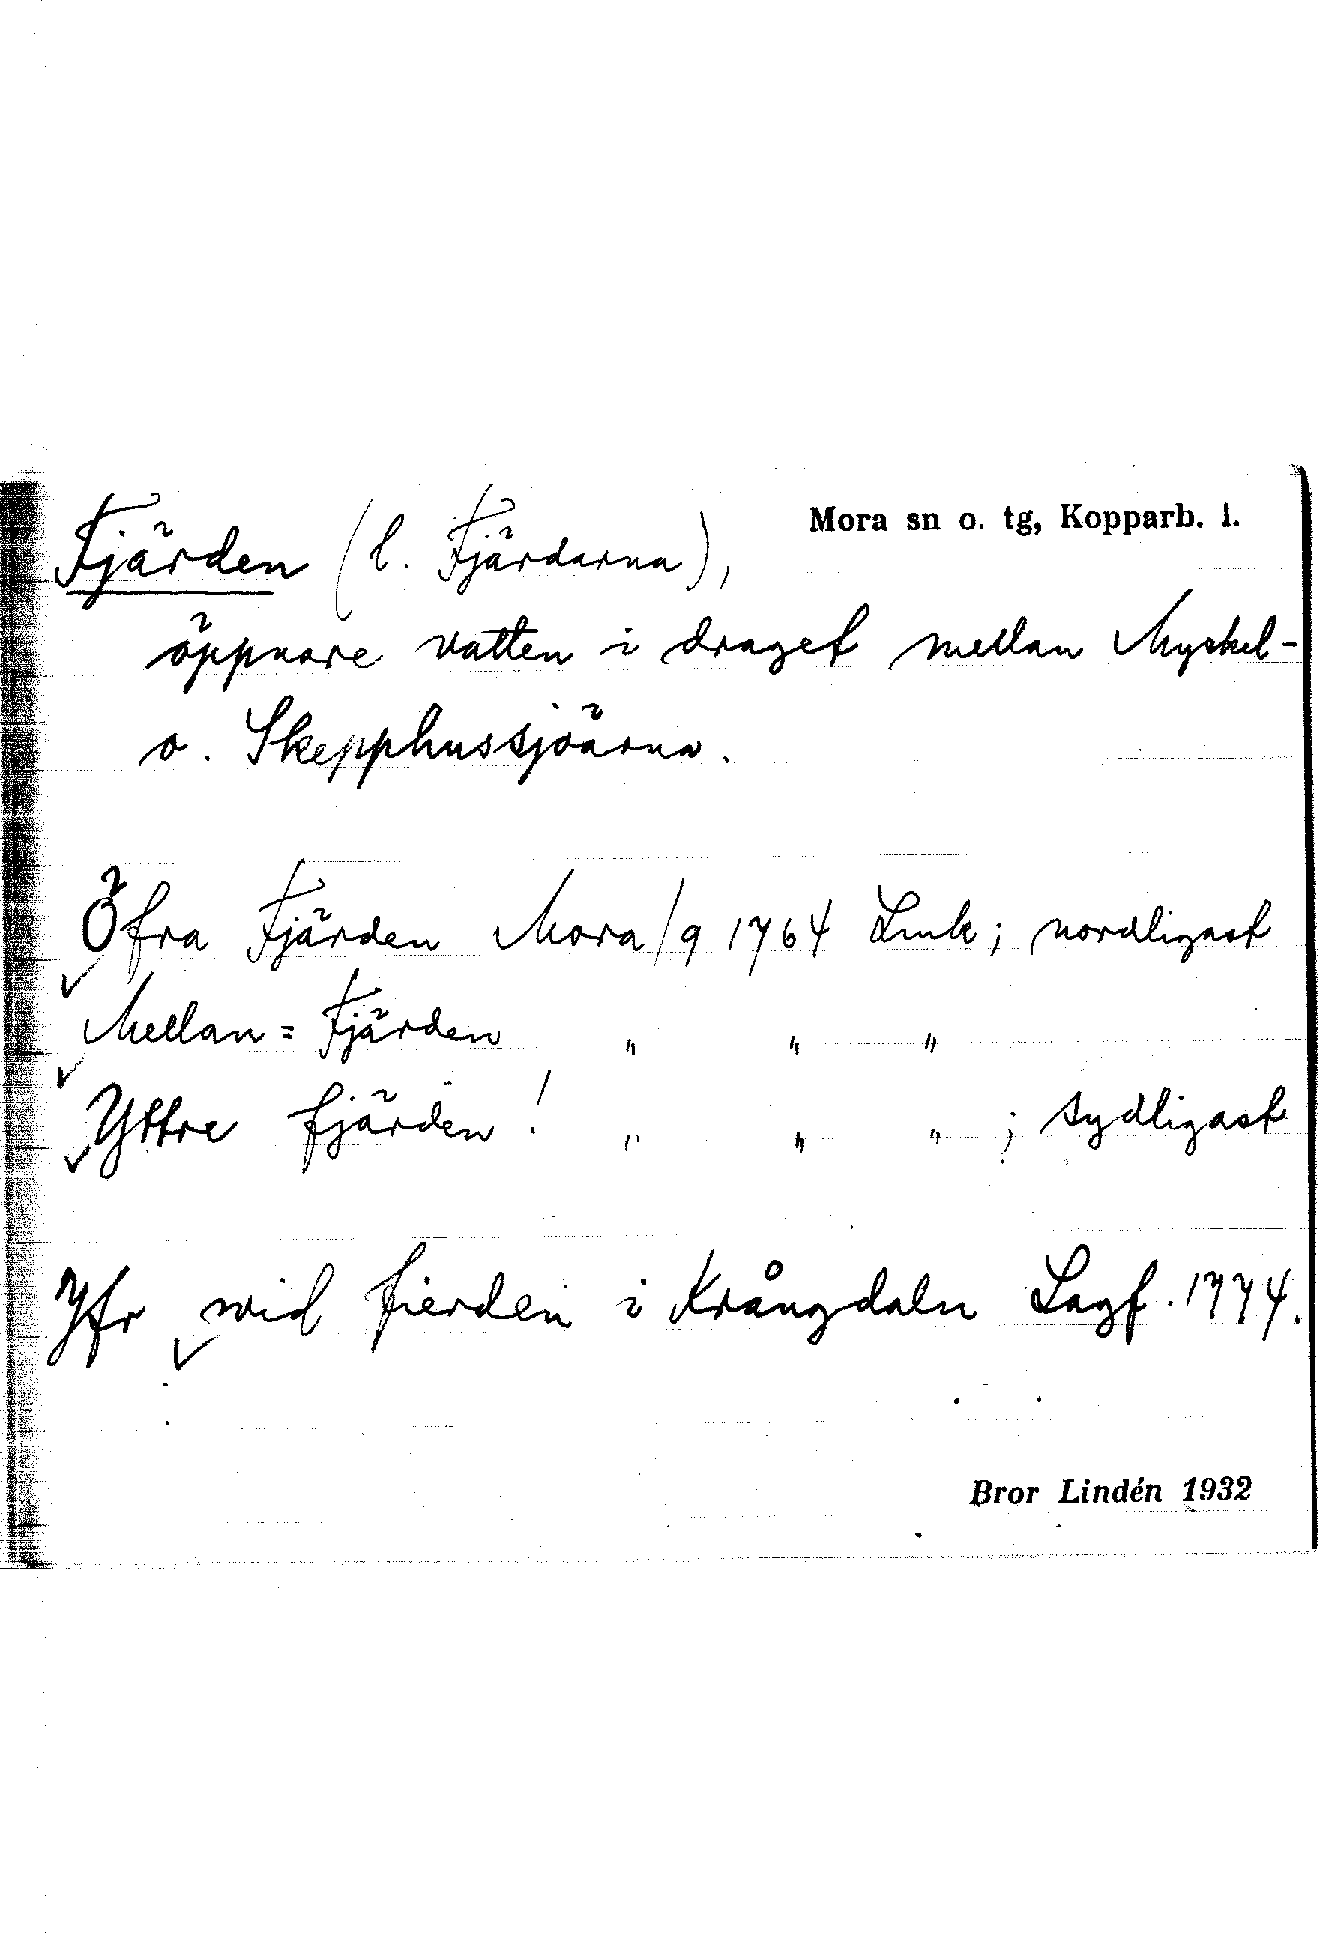 Mora sn o. tg, Kopparb. l.
Fjärden (l. Fjärdarna),
öppnare vatten i draget mellan Myckel-
o. Skepphussjöarna.
Öfra Fjärden Mora/9 1764 Lmk; nordligast
Mellan = Fjärden " " "
Yttre fjärden! " " " ; sydligast
Jfr wid fierden i Krångdaln Lagf. 1774.
Bror Lindén 1932